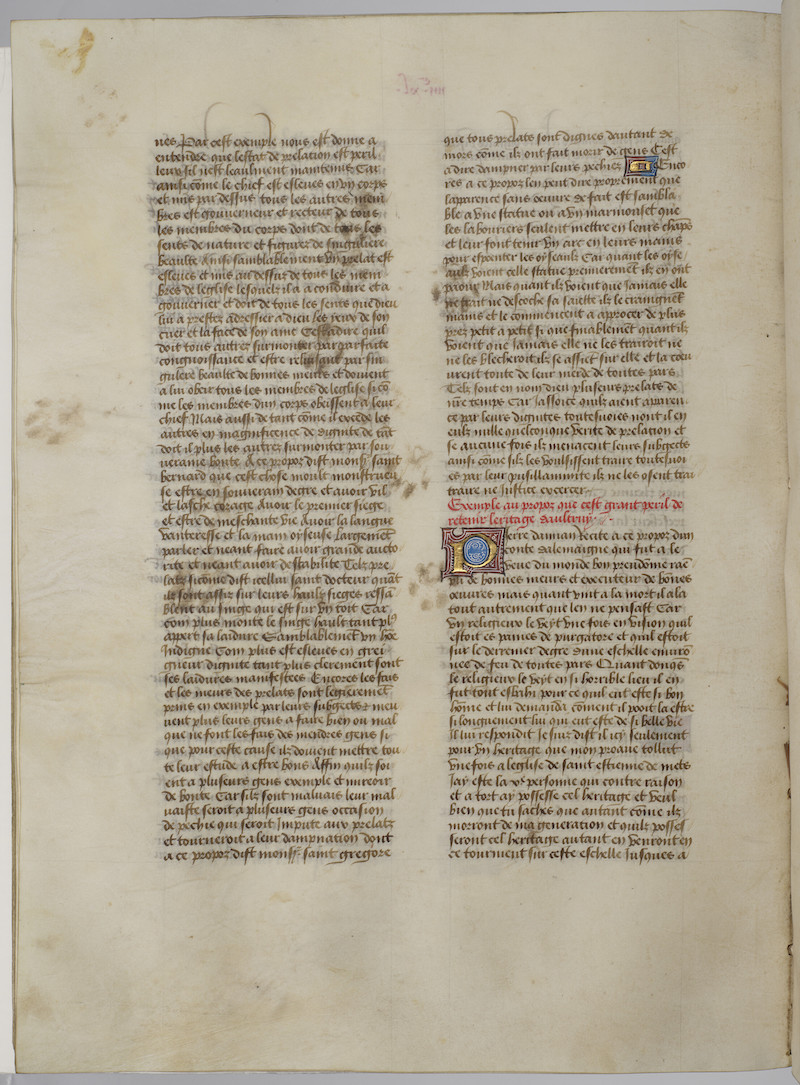 nes Par cest exemple nous est donne a
entendre que lestat de prelation est peril
leux sil nest leaulment maintenus Car
ainsi come le chief est esleues en vn corps
et mis par dessus tous les autres mem
bres est gouverneur et recteur de tous
les membres du corps dont de tous les
sens de nature et figures de singuliere
beaulte Ainsi samblablement vn prelat est
esleues et mis au dessus de tous les mem
bres de leglise lesquelz il a a conduire et a
gouverner et doit de tous les sens que dieu
lui a prestez adressier a dieu les yeux de son
cuer et la face de son ame Cestadire quil
doit tous autres surmonter par parfaite
congnoissance et estre par sin
gulere beaulte de bonnes meurs et doivent
a lui obeir tous les membres de leglise si cõ
me les membres dun corps obeissent a leur
chief Mais aussi de tant come il excede les
autres en magnificence de dignite de tãt
doit il plus les autres surmonter par sou
veraine bonte A ce propoz dist monsr saint
bernard que cest chose moult monstrueu
se estre en souverain degre et avoir vil
et lasche corage avoir le premier siege
et estre de meschante vie avoir la langue
vanteresse et la main oyseuse largemẽt
parler et neant faire avoir grande aucto
rite et neant avoir destabilite Telz pre
laz sicome dist icellui saint docteur quãt
ilz sont assiz sur leurs haulz sieges ressã
blent au singe qui est sur vn toit Car
com plus monte le singe hault tant pl9
appert sa laidure Samblablemẽt vn hõe
Indigne Com plus est esleues en grei
gneur dignite tant plus clerement sont
ses laidures manifestees Encores les fais
et les meurs des prelas sont legieremẽt
prins en exemple par leurs subgects z meu
uent plus leurs gens a faire bien ou mal
que ne font les fais des mendres gens si
que pour ceste cause ilz doivent mettre tou
te leur estude a estre bons Affin quilz soi
ent a pluseurs gens exemple et mireoir
de bonte Car silz sont malvais leur mal
vaistie seroit a pluseurs gens occasion
de pechie qui seroit Impute aux prelaz
et tourneroit a leur dampnation dont
a ce propoz dist monsr saint gregore
que tous prelats sont dignes dautant de
mors cõme ilz ont fait morir de gens Cest
a dire dampner par leurs pechiez Enco
res a ce propoz len peut dire proprement que
lapparence sans oeuvre de fait est sambla
ble a vne statue ou a vn marmouset que
les labouriers seulent mettre en leurs chãps
et leur font tenir vn arc en leurs mains
pour espenter les oyseaulx Car quant les oyse
aulx voient celle statue premieremẽt ilz en ont
paour Mais quant ilz voient que jamais elle
ne descoche sa saiette ilz le craingnẽt
mains et le commencent a approcer de plus
prez petit a petit si que finablemẽt quant ilz
voient que Jamais elle ne les trairoit ne
ne les blecheroit ilz se assiet sur elle et la cou
urent toute de leur merde de toutes pars
Telz sont en nom dieu pluseurs prelats de
nr̃e temps Car Jassoice quilz aient apparen
ce par leurs dignites toutesvoies nont il en
eulz nulle quelconque verite de prelation et
se aucune fois ilz menacent leurs subgects
ainsi cõme silz les voulsissent traire toutesvoi
es par leur pusillanimite ilz ne les osent trai
traire ne justice excercer
Exemple au propoz que cest grant peril de
retenir leritage daultruy
Pierre damian Recite a ce propoz dun
conte dalemaigne qui fut a le
veue du monde bon prendõme raẽ
pli de bonnes meurs et executeur de bõnes
oeuvres mais quant vint a la mort il ala
tout autrement que len ne pensast Car
vn religieux le veyt vne fois en vision quil
estoit es paines de purgatore et quil estoit
sur le derrenier degre dune eschelle enuirõ
nee de feu de toutes pars Quant donqs
le religieux le veyt en si horrible lieu il en
fut tout esbahi pour ce quil eut este si bon
hõme et lui demanda cõment il pooit la estre
si longuement lui qui eut este de si belle vie
Il lui respondit Je suy dist il icy seulement
pour vn heritage que mon proaue tollut
vne fois a leglise de saint estienne de mets
Jay este la ve personne qui contre raison
et a tort ay possesse cel heritage et veul
bien que tu saches que autant cõme ilz
morront de ma generation et quilz posses
seront cel heritage autant en venront en
ce tourment sur ceste eschelle Jusques a